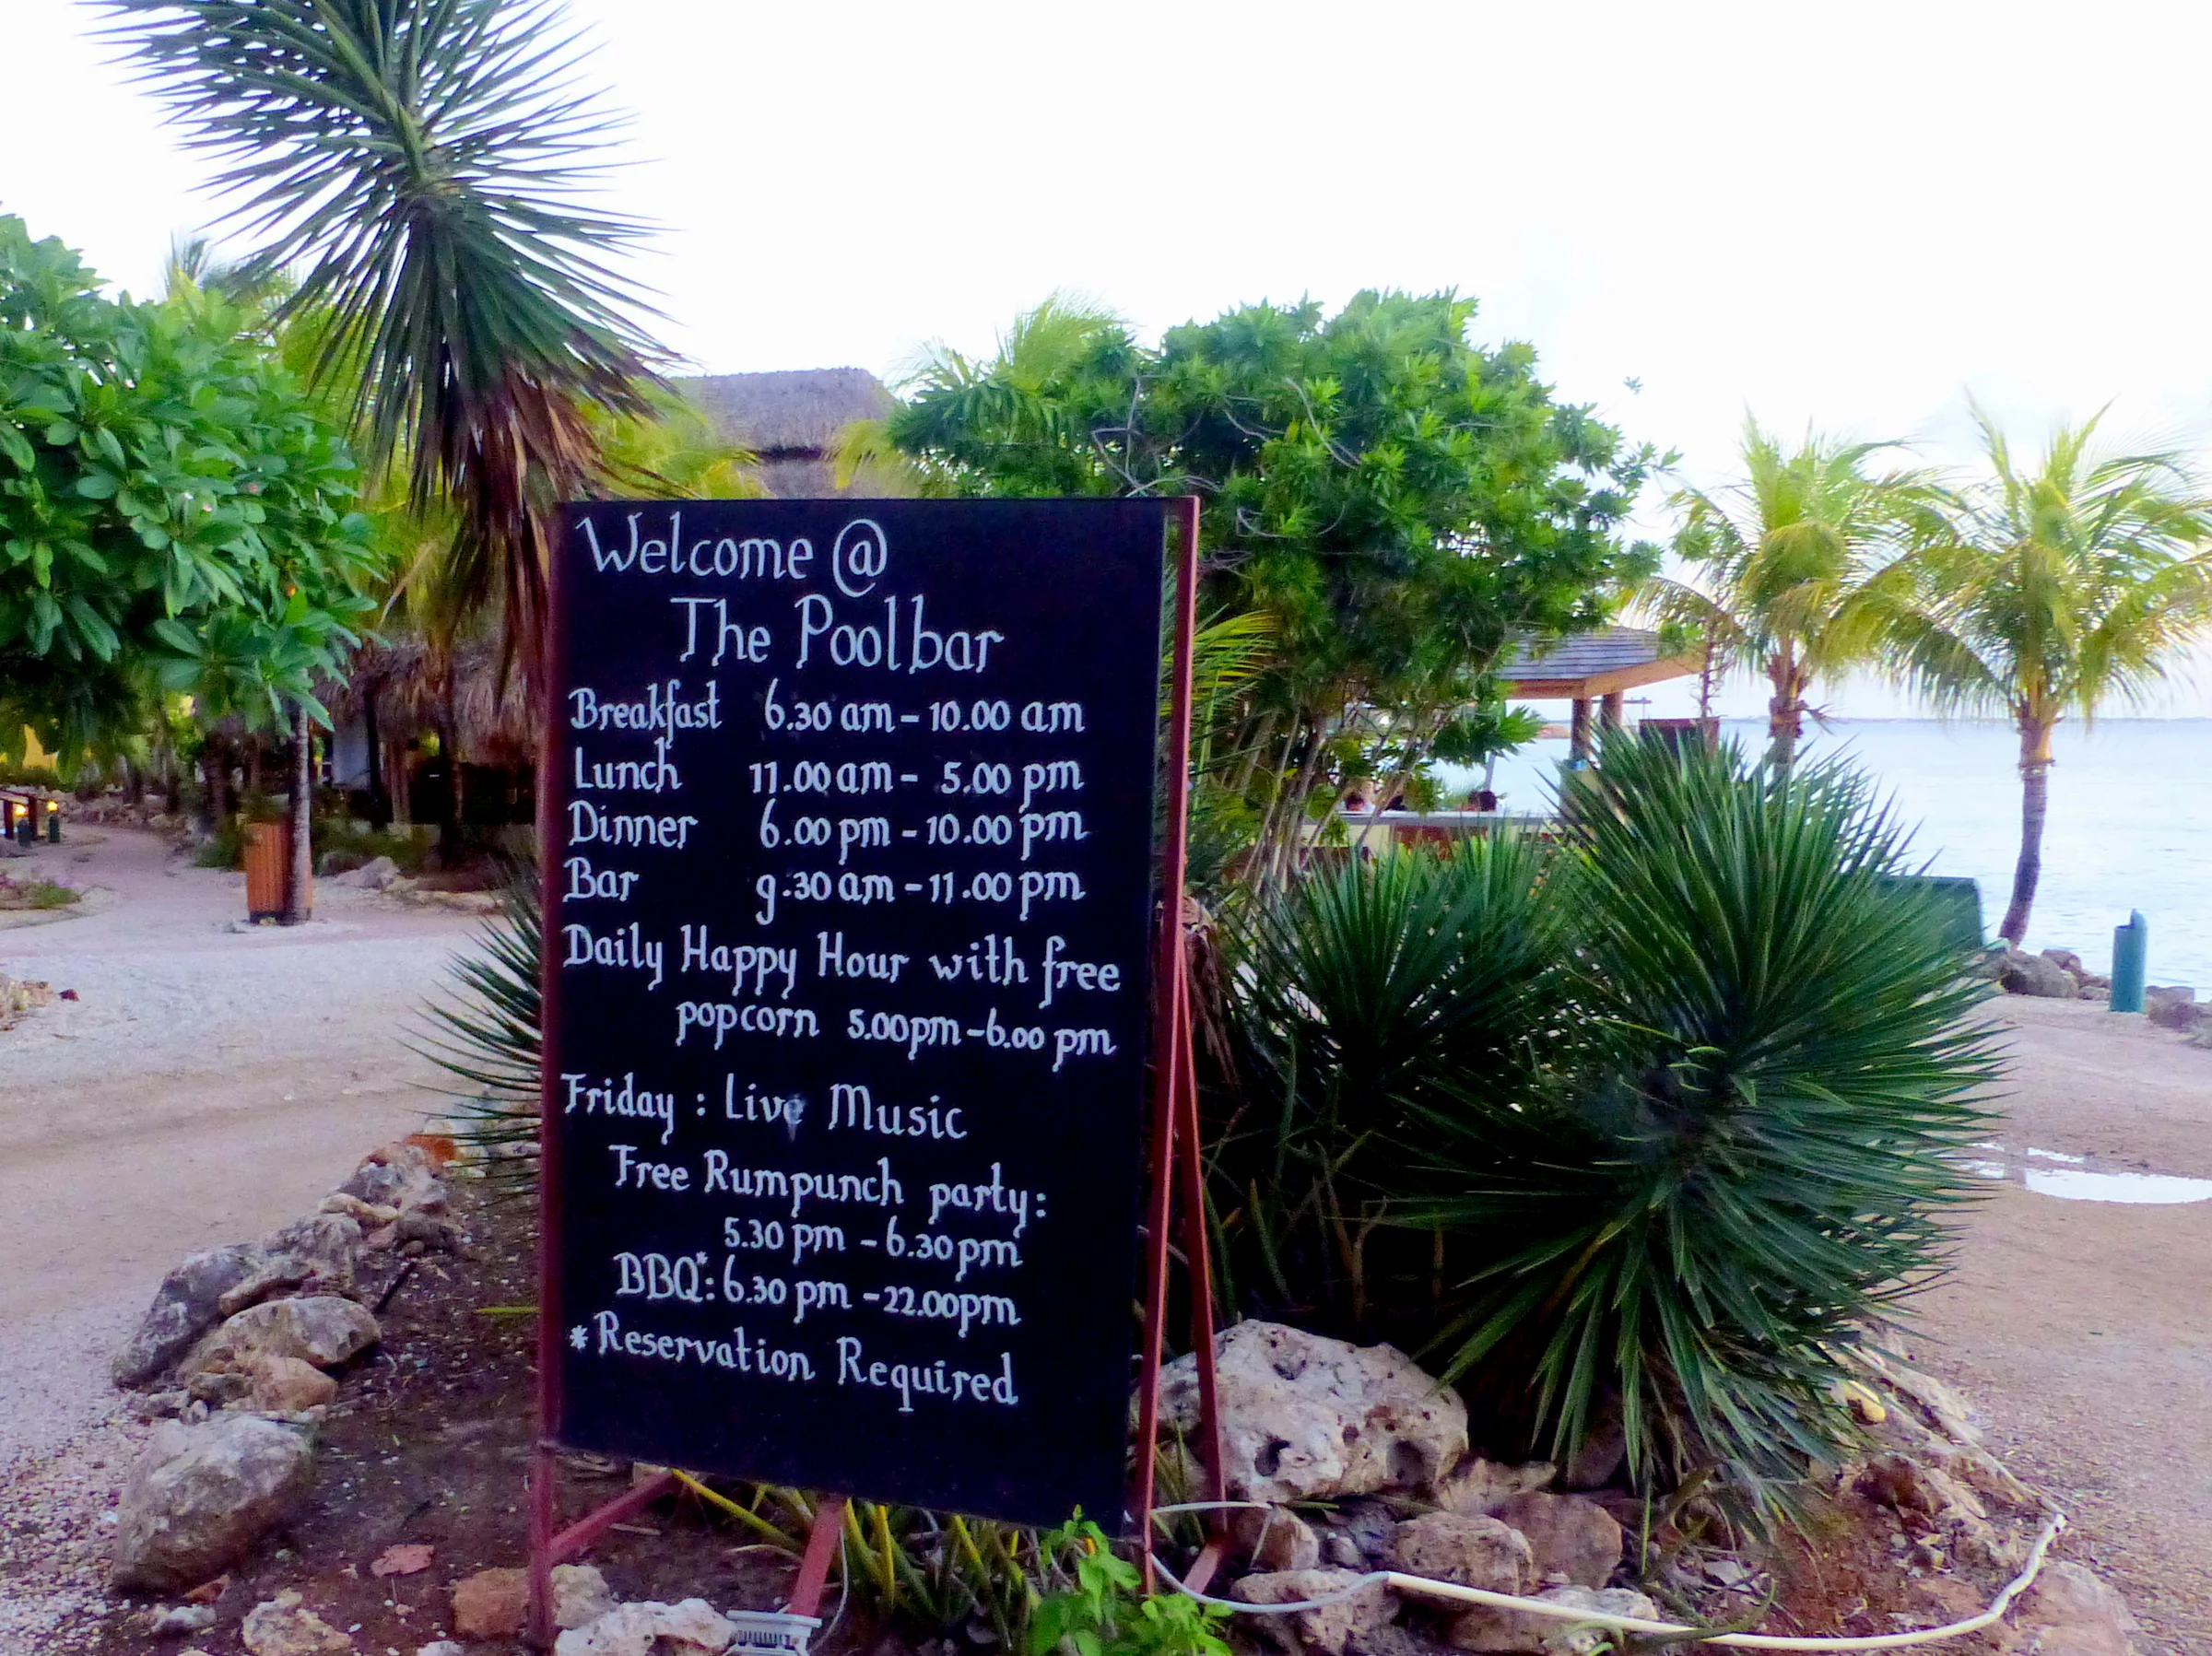 Welcome @
The Poolbar
Breakfast 6.30 am - 10.00 am
Lunch 11.00 am - 5.00 pm
Dinner 6.00 pm - 10.00 pm
Bar 9.30 am - 11.00 pm
Daily Happy Hour with free
popcorn 5.00pm - 6.00 pm
Friday : Live Music
Free Rumpunch party:
5.30 pm - 6.30 pm
BBQ*: 6.30 pm - 22.00pm
*Reservation Required